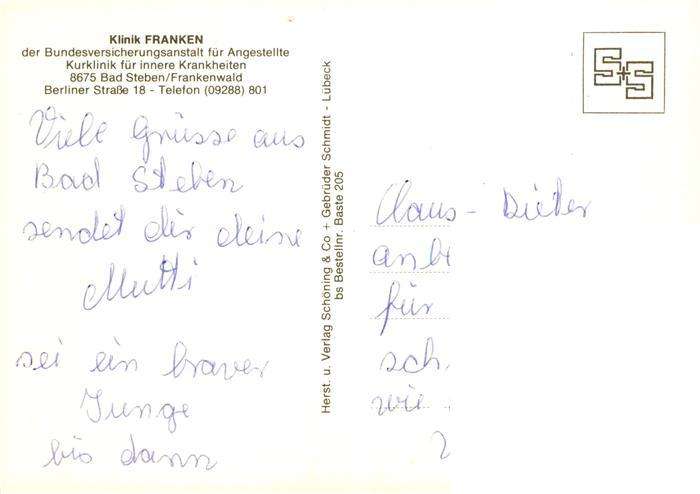 Klinik FRANKEN
der Bundesversicherungsanstalt für Angestellte
Kurklinik für innere Krankheiten
8675 Bad Steben/Frankenwald
Berliner Straße 18 - Telefon (09288) 801
Viele Grüsse aus
Bad Steben
sendet dir deine
Mutti
sei ein braver
Junge
bis dann
Herst. u. Verlag Schöning & Co + Gebrüder Schmidt - Lübeck
bs Bestellnr. Baste 205
S+S
Claus-Dieter
für
wie